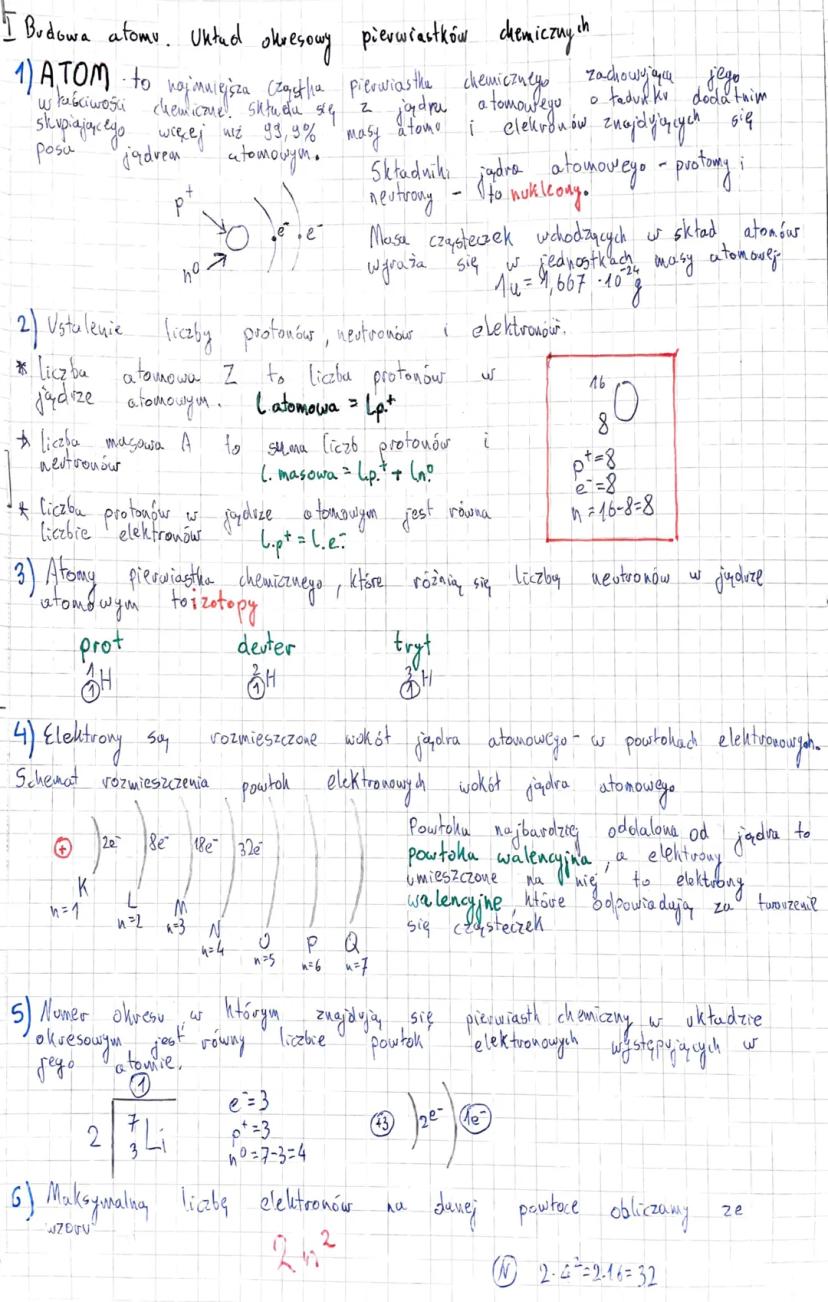 I Budowa atomu. Układ okresowy pierwiastków chemicznych
1) ATOM - to najmniejsza cząstka pierwiastka chemicznego zachowująca jego
właściwości chemiczne. składa się z jądra atomowego o ładunku dodatnim
skupiającego więcej niż 99,9% masy atomo i elekronów znajdujących się
poza jądrem atomowym.
Składniki jądra atomowego - protony i
neutrony - to nukleony.
p+
e- e-
n0
Masa cząsteczek wchodzących w skład atomów
wyraża się w jednostkach masy atomowej
1u = 1,667 · 10^-24 g
2) Ustalenie liczby protonów, neutronów i elektronów.
* liczba atomowa Z to liczba protonów w
jądrze atomowym. l.atomowa = l.p.+
* liczba masowa A to suma liczb protonów i
neutronów l. masowa = l.p.+ + l.n.0
* liczba protonów w jądrze atomowym jest równa
liczbie elektronów l.p+ = l.e-
16
8 O
p+ = 8
e- = 8
n = 16-8=8
3) Atomy pierwiastka chemicznego, które różnią się liczbą neutronów w jądrze
atomowym to izotopy
prot deuter tryt
1 1 H 2 1 H 3 1 H
4) Elektrony są rozmieszczone wokół jądra atomowego - w powłokach elektronowych.
Schemat rozmieszczenia powłok elektronowych wokół jądra atomowego
+ 2e- 8e- 18e- 32e-
K L M N O P Q
n=1 n=2 n=3 n=4 n=5 n=6 n=7
Powłoka najbardziej oddalona od jądra to
powłoka walencyjna, a elektrony
umieszczone na niej to elektrony
walencyjne, które odpowiadają za tworzenie
się cząsteczek
5) Numer okresu, w którym znajdują się pierwiastk chemiczny w układzie
okresowym jest równy liczbie powłok elektronowych występujących w
jego atomie.
1
2 7 3 Li
e- = 3
p+ = 3
n0 = 7-3=4
+3 2e- 1e-
6) Maksymalną liczbę elektronów na danej powłoce obliczamy ze
wzoru
2n²
N 2·4²=2·16=32